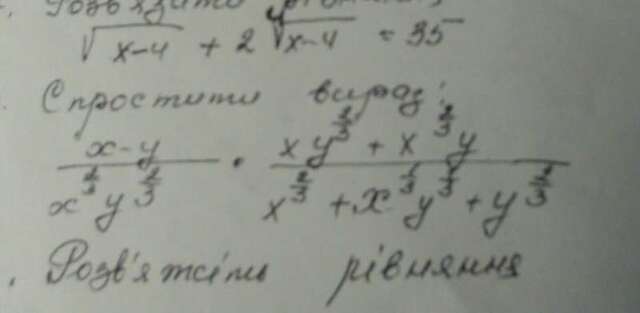 Розв'язати рівняння
√(x-4) + 2 ∜(x-4) = 35
Спростити вираз:
(x-y)/(x^(2/3) y^(2/3)) · (x y^(2/3) + x^(2/3) y)/(x^(2/3) + x^(1/3) y^(1/3) + y^(2/3))
Розв'яжіть рівняння